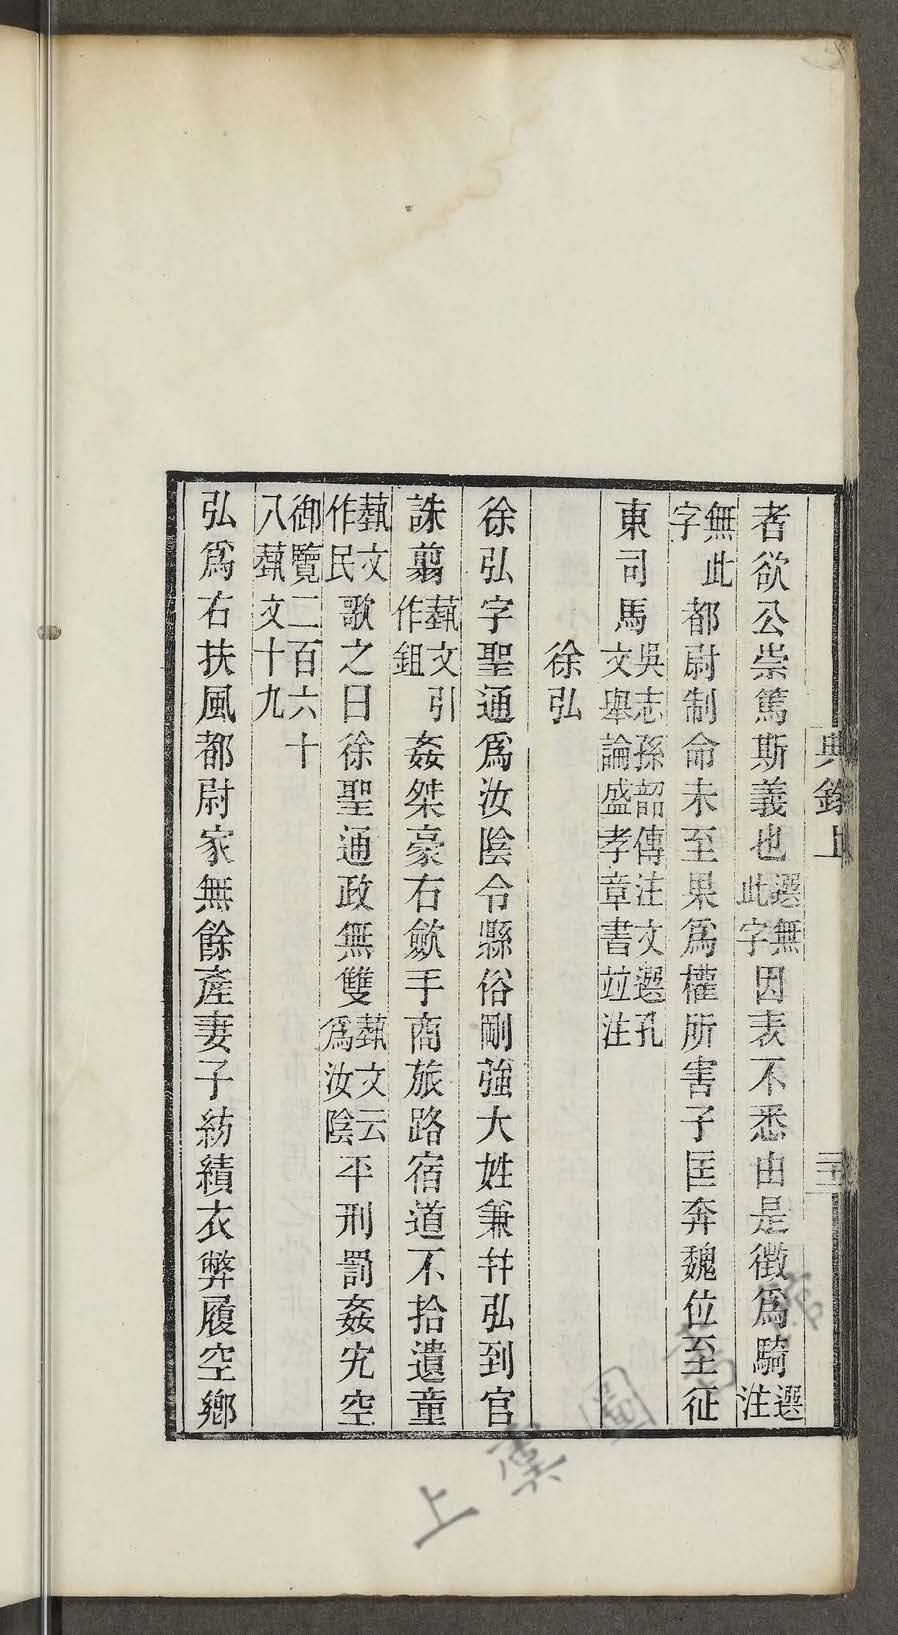 典錄上
者欲公崇篤斯義也選無此字因表不悉由是徵爲騎選注
無此字都尉制命未至果爲權所害子匡奔魏位至征
東司馬吳志孫韶傳注文選孔文舉論盛孝章書竝注
徐弘
徐弘字聖通爲汝陰令縣俗剛強大姓兼并弘到官
誅翦藝文引作鉏姦桀豪右斂手商旅路宿道不拾遺童
藝文作民歌之曰徐聖通政無雙藝文云爲汝陰平刑罰姦宄空
御覽二百六十八藝文十九
弘爲右扶風都尉家無餘產妻子紡績衣弊履空鄉
上虞圖書館